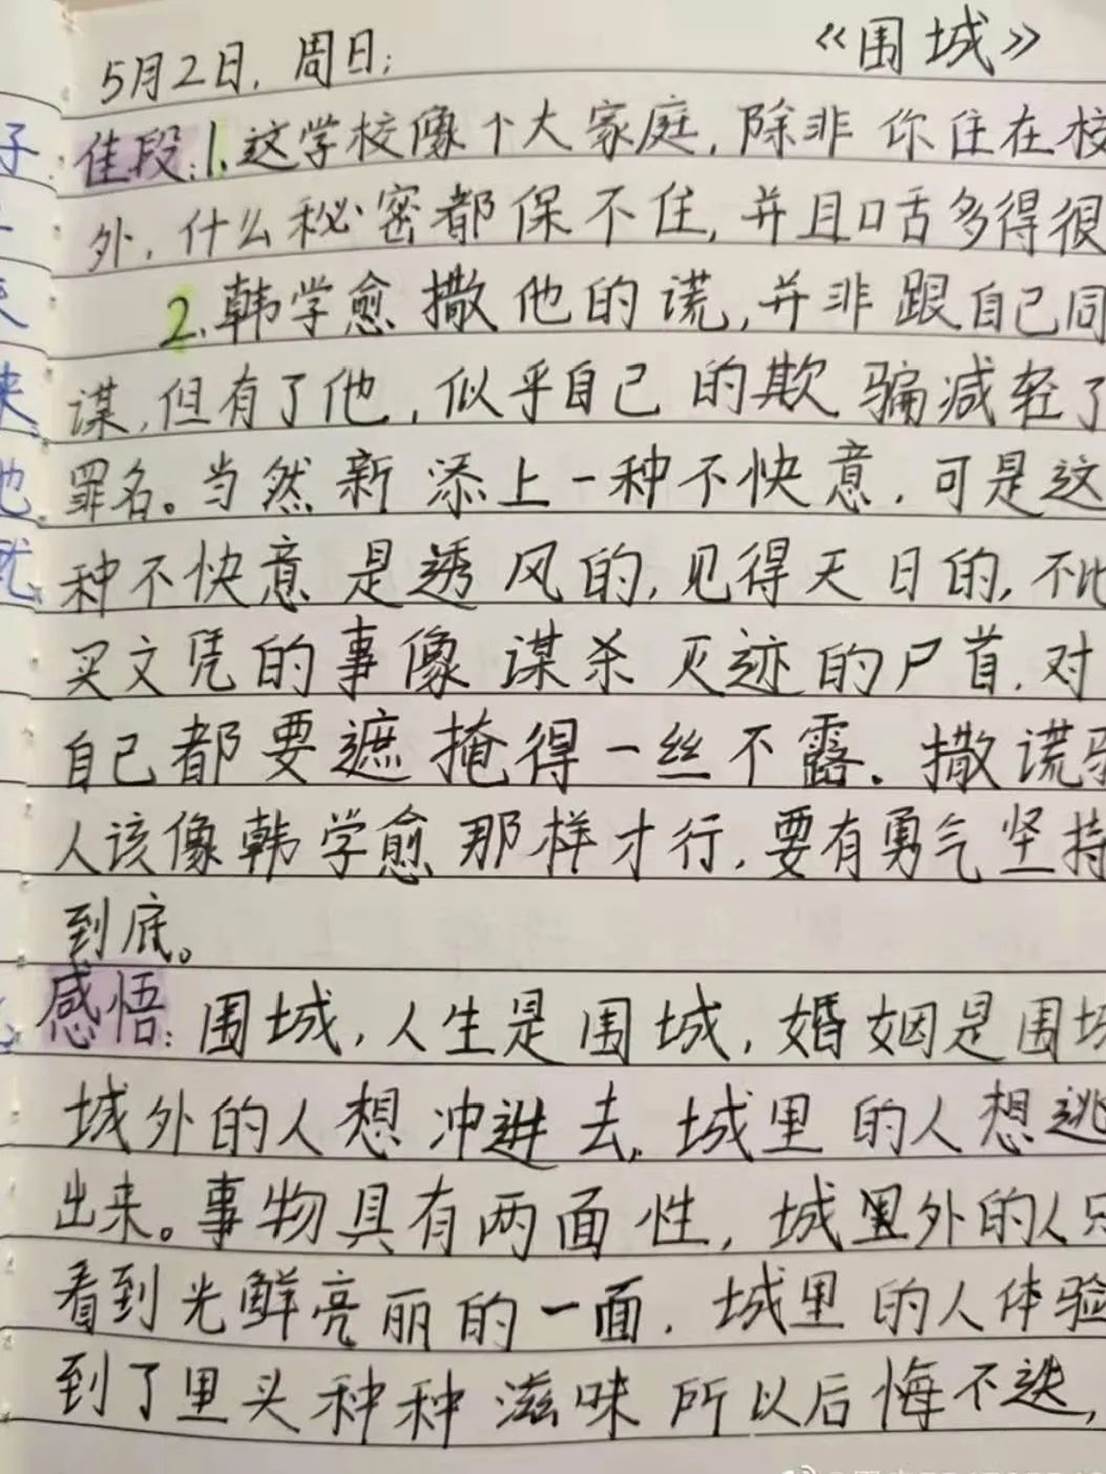 《围城》
5月2日，周日；
佳段：1.这学校像个大家庭，除非你住在校
外，什么秘密都保不住，并且口舌多得很
2.韩学愈撒他的谎，并非跟自己同
谋，但有了他，似乎自己的欺骗减轻了
罪名。当然新添上一种不快意，可是这
种不快意是透风的，见得天日的，不比
买文凭的事像谋杀灭迹的尸首，对
自己都要遮掩得一丝不露。撒谎骗
人该像韩学愈那样才行，要有勇气坚持
到底。
感悟：围城，人生是围城，婚姻是围城
城外的人想冲进去，城里的人想逃
出来。事物具有两面性，城里外的人只
看到光鲜亮丽的一面，城里的人体验
到了里头种种滋味所以后悔不迭，